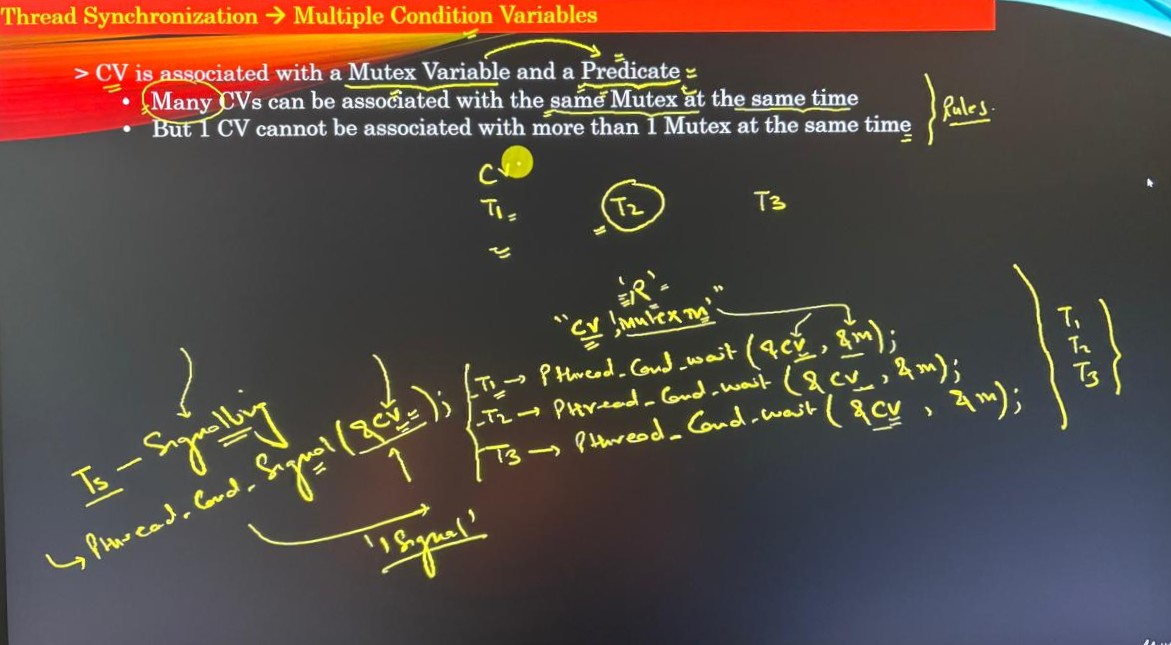 Thread Synchronization → Multiple Condition Variables
> CV is associated with a Mutex Variable and a Predicate
• Many CVs can be associated with the same Mutex at the same time
• But 1 CV cannot be associated with more than 1 Mutex at the same time
Rules.
CV
T1 T2 T3
'R'
"CV, Mutex m"
T1 → Pthread_Cond_wait (&CV, &m);
T2 → Pthread_Cond_wait (&CV, &m);
T3 → Pthread_Cond_wait (&CV, &m);
T1
T2
T3
Ts - Signalling
↳ Pthread_Cond_Signal (&CV);
'1 Signal'